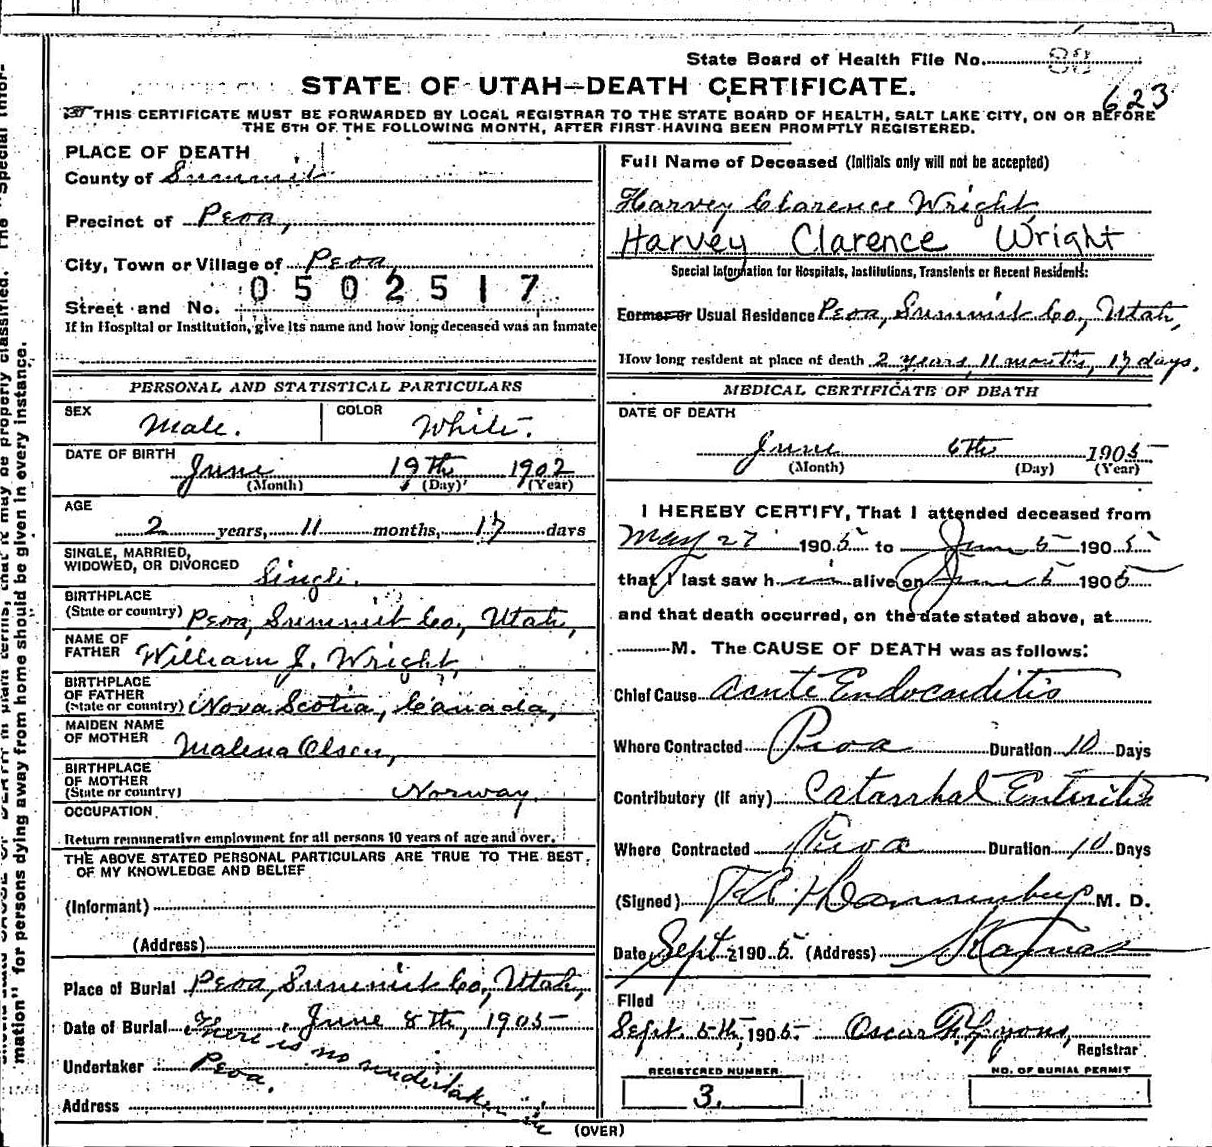 State Board of Health File No. 88
STATE OF UTAH—DEATH CERTIFICATE.
623
THIS CERTIFICATE MUST BE FORWARDED BY LOCAL REGISTRAR TO THE STATE BOARD OF HEALTH, SALT LAKE CITY, ON OR BEFORE
THE 5TH OF THE FOLLOWING MONTH, AFTER FIRST HAVING BEEN PROMPTLY REGISTERED.
PLACE OF DEATH
County of Summit
Precinct of Peoa,
City, Town or Village of Peoa,
0502517
Street and No.
If in Hospital or Institution, give its name and how long deceased was an Inmate
PERSONAL AND STATISTICAL PARTICULARS
SEX Male.
COLOR White.
DATE OF BIRTH
June 19th 1902
(Month) (Day) (Year)
AGE
2 years, 11 months, 17 days
SINGLE, MARRIED,
WIDOWED, OR DIVORCED Single.
BIRTHPLACE
(State or country) Peoa, Summit Co, Utah,
NAME OF
FATHER William J. Wright,
BIRTHPLACE
OF FATHER
(State or country) Nova Scotia, Canada,
MAIDEN NAME
OF MOTHER Malena Olsen,
BIRTHPLACE
OF MOTHER
(State or country) Norway.
OCCUPATION
Return remunerative employment for all persons 10 years of age and over.
THE ABOVE STATED PERSONAL PARTICULARS ARE TRUE TO THE BEST
OF MY KNOWLEDGE AND BELIEF
(Informant)
(Address)
Place of Burial Peoa, Summit Co, Utah,
Date of Burial June 8th, 1905
There is no undertaker in
Undertaker Peoa.
Address
Full Name of Deceased (Initials only will not be accepted)
Harvey Clarence Wright,
Harvey Clarence Wright
Special Information for Hospitals, Institutions, Transients or Recent Residents:
Former or Usual Residence Peoa, Summit Co, Utah,
How long resident at place of death 2 years, 11 months, 17 days.
MEDICAL CERTIFICATE OF DEATH
DATE OF DEATH
June 6th 1905
(Month) (Day) (Year)
I HEREBY CERTIFY, That I attended deceased from
May 27 1905 to June 5 1905
that I last saw him alive on June 5 1905
and that death occurred, on the date stated above, at
M. The CAUSE OF DEATH was as follows:
Chief Cause acute Endocarditis
Where Contracted Peoa Duration 10 Days
Contributory (if any) Catarrhal Enteritis
Where Contracted Peoa Duration 10 Days
(Signed) M. D.
Date Sept 2 1905. (Address) Kamas
Filed
Sept. 5th, 1905. Oscar F. Lyons,
Registrar
REGISTERED NUMBER
3.
NO. OF BURIAL PERMIT
(OVER)
mation" for persons dying away from home should be given in every instance.